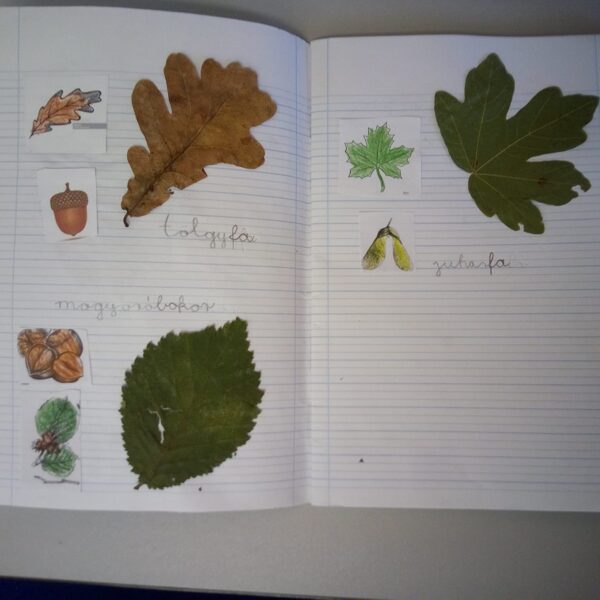 tölgyfa
mogyoróbokor
juharfa